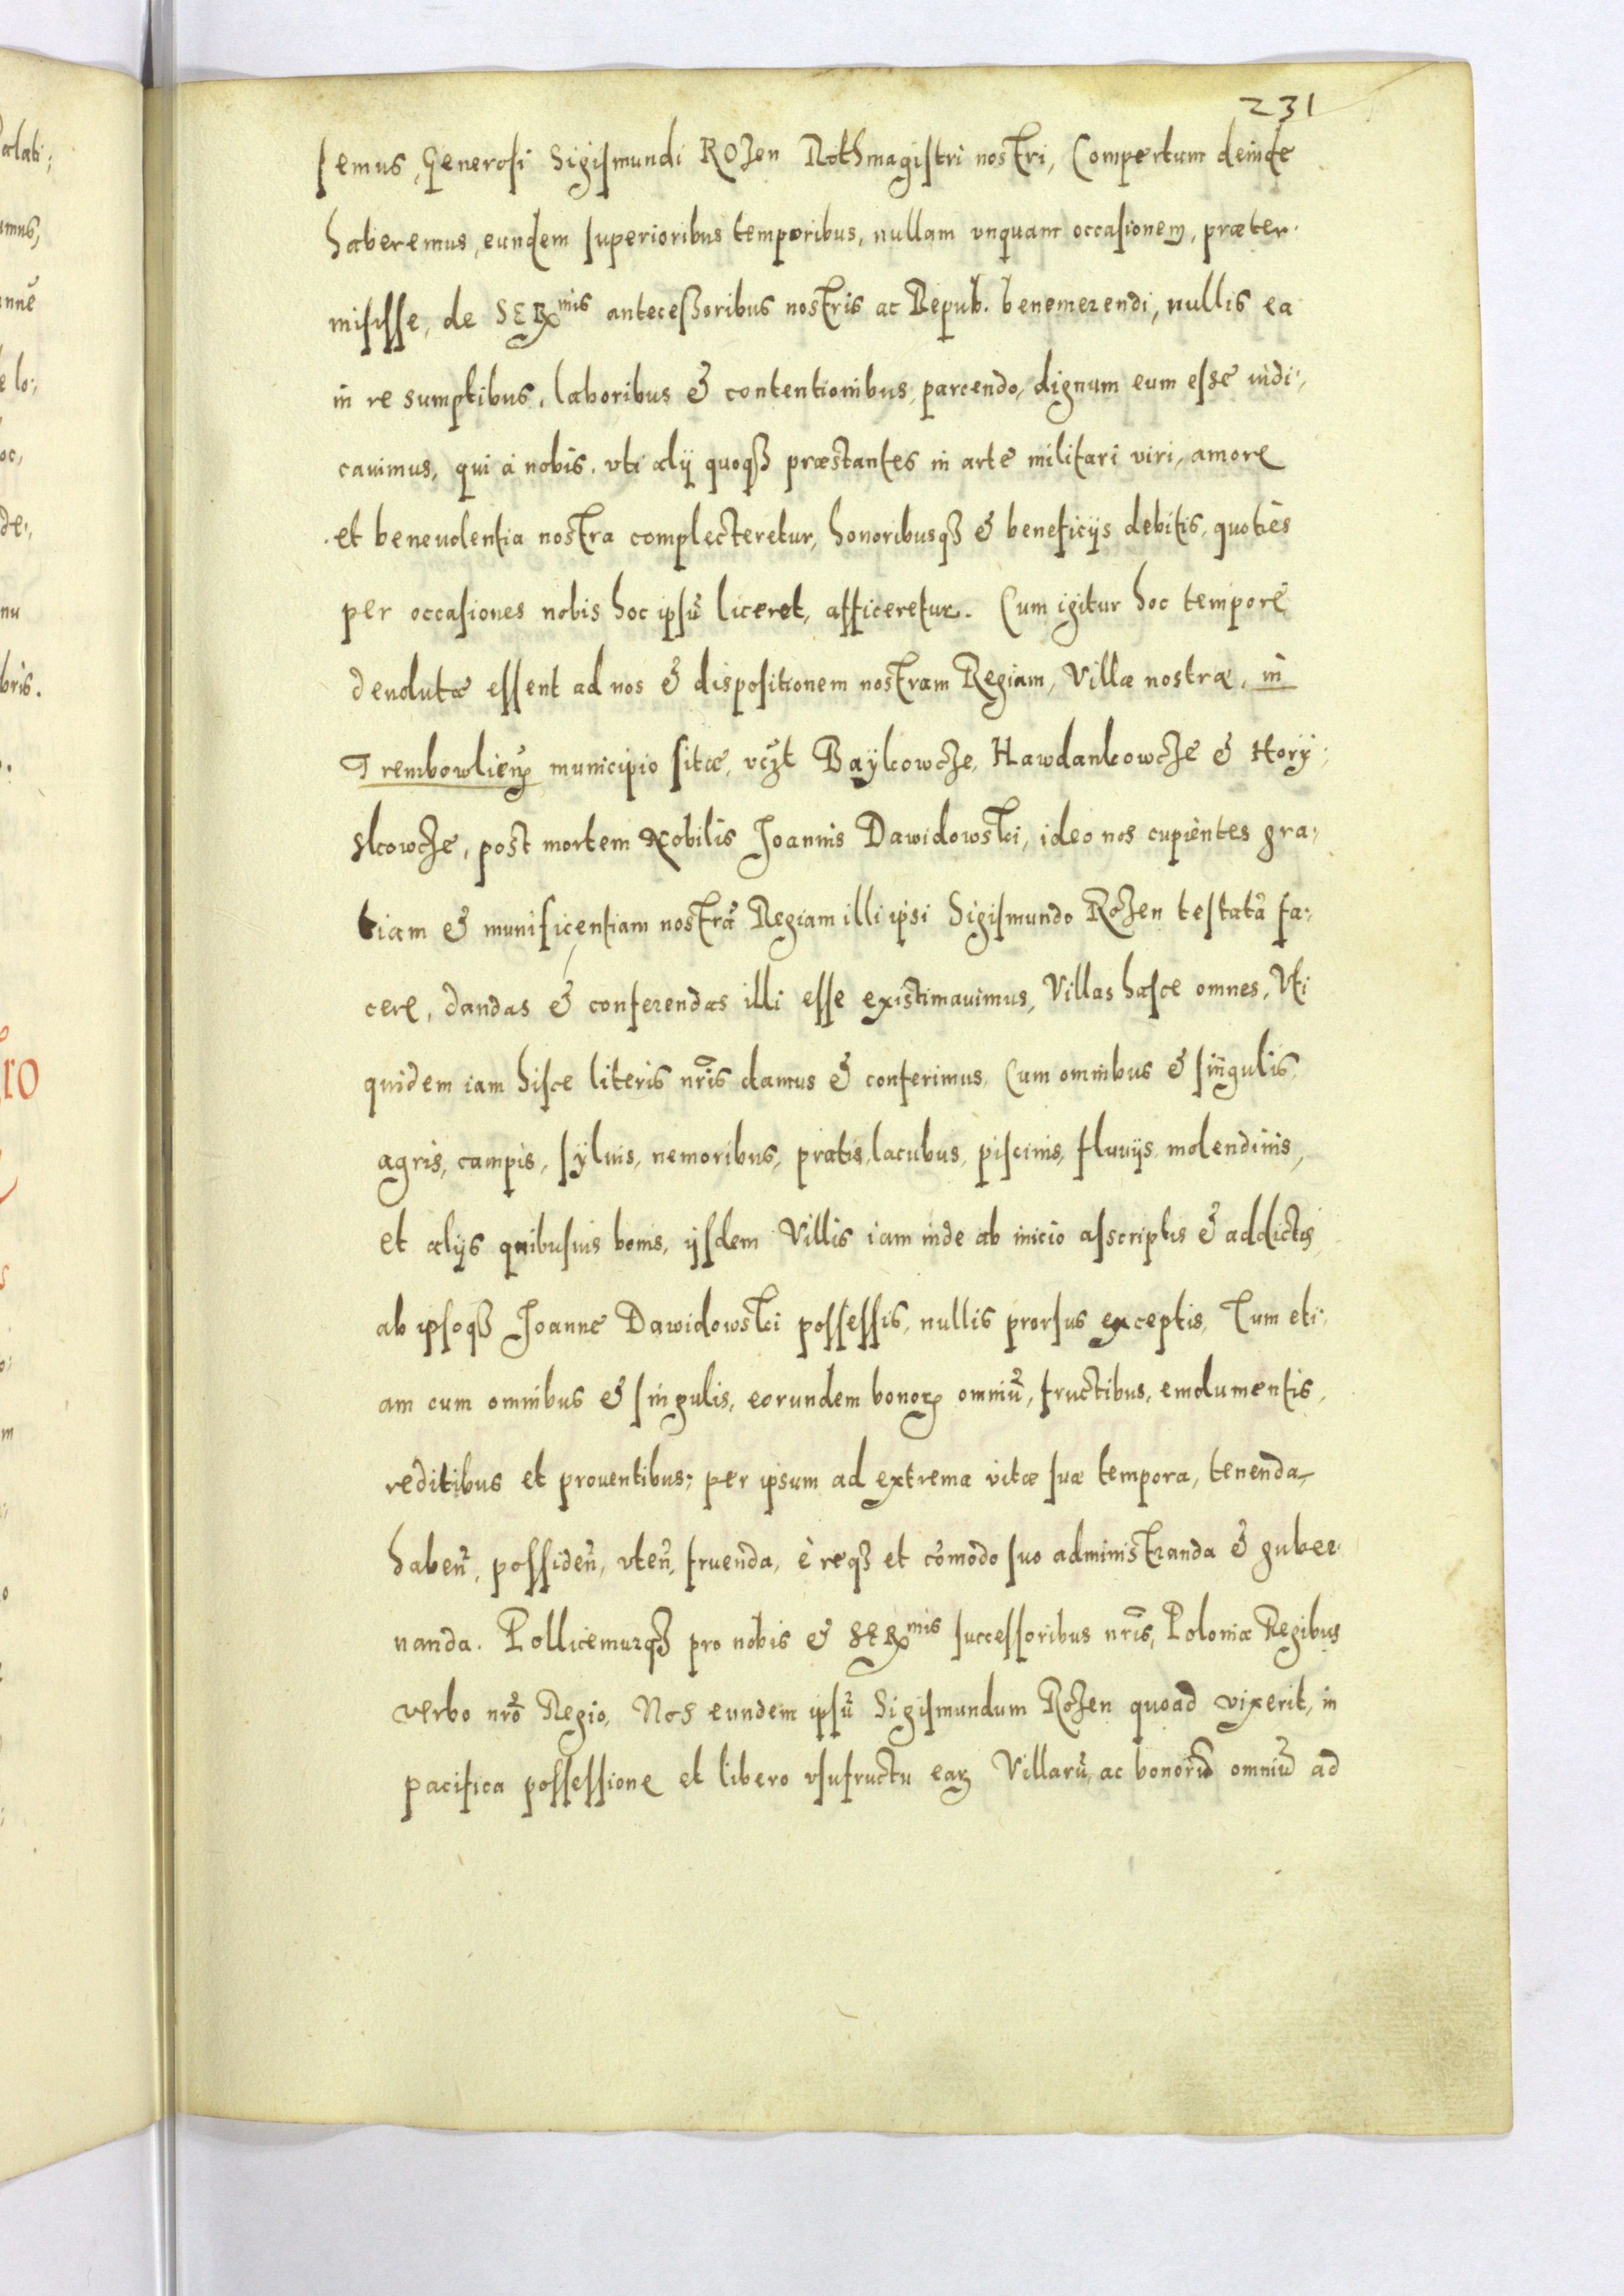 231
semus, Generosi Sigismundi Rozen Rothmagistri nostri, Compertum deinde
haberemus, eundem superioribus temporibus, nullam vnquam occasionem, præter-
misisse, de SER^mis antecessoribus nostris ac Repub. benemerendi, nullis ea
in re sumptibus, laboribus & contentionibus, parcendo, dignum eum esse iudi-
cauimus, qui a nobis, vti alÿ quoq3 præstantes in arte militari viri, amore
et beneuolentia nostra complecteretur, honoribusq3 & beneficÿs debitis, quoties
per occasiones nobis hoc ipsū liceret, afficeretur. Cum igitur hoc tempore
deuolutæ essent ad nos & dispositionem nostram Regiam, Villæ nostræ, in
Trembowlieñ municipio sitæ, vcz̃t Baÿkowcze, Hawdankowcze & Horÿ-
slcowcze, post mortem Nobilis Joannis Dawidowski, ideo nos cupientes gra-
tiam & munificentiam nostrā Regiam illi ipsi Sigismundo Rozen testatā fa-
cere, dandas & conferendas illi esse existimauimus, Villas hasce omnes, Vti
quidem iam hisce literis nr̄is damus & conferimus, Cum omnibus & singulis
agris, campis, sÿluis, nemoribus, pratis, lacubus, piscinis, fluuÿs, molendinis,
et alÿs quibusuis bonis, ÿsdem Villis iam inde ab inicio asscriptis & addictis
ab ipsoq3 Joanne Dawidowski possessis, nullis prorsus exceptis, Tum eti-
am cum omnibus & singulis, eorundem bonoꝝ omniū, fructibus, emolumentis,
reditibus et prouentibus; per ipsum ad extrema vitæ suæ tempora, tenenda,
habeñ, possideñ, vteñ, fruenda, è req3 et cōmodo suo administranda & guber-
nanda. Pollicemurq3 pro nobis & SER^mis successoribus nr̄is, Poloniæ Regibus
verbo nr̄o Regio, Nos eundem ipsū Sigismundum Rozen quoad vixerit, in
pacifica possessione et libero vsufructu eaꝝ Villarū, ac bonorū omniū ad